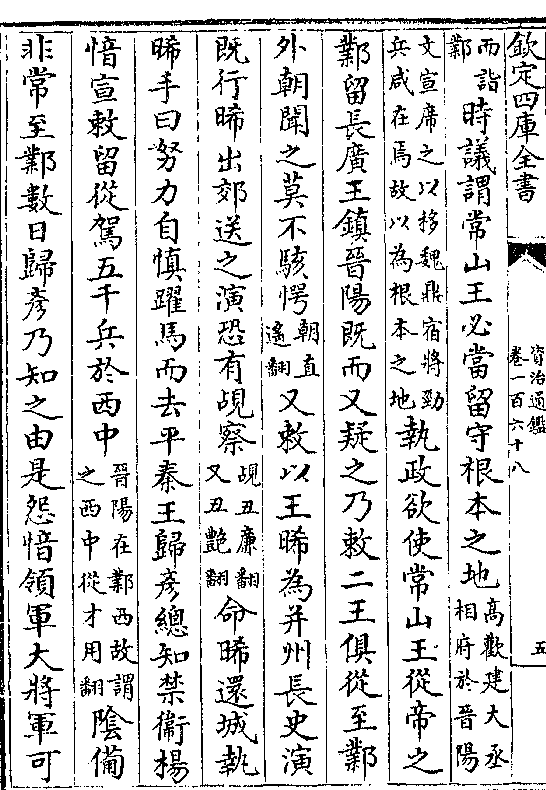 欽定四庫全書
資治通鑑
卷一百六十八
五
而詣
鄴
時議謂常山王必當留守根本之地
高歡建大丞
相府於晉陽
文宣席之以移魏鼎宿將勁
兵咸在焉故以為根本之地
執政欲使常山王從帝之
鄴留長廣王鎮晉陽既而又疑之乃敕二王俱從至鄴
外朝聞之莫不駭愕
朝直
遙翻
又敕以王晞為并州長史演
既行晞出郊送之演恐有覘察
覘丑亷翻
又丑艷翻
命晞還城執
晞手曰努力自慎躍馬而去平秦王歸彥總知禁衞楊
愔宣敕留從駕五千兵於西中
晉陽在鄴西故謂
之西中從才用翻
隂備
非常至鄴數日歸彥乃知之由是怨愔領軍大將軍可